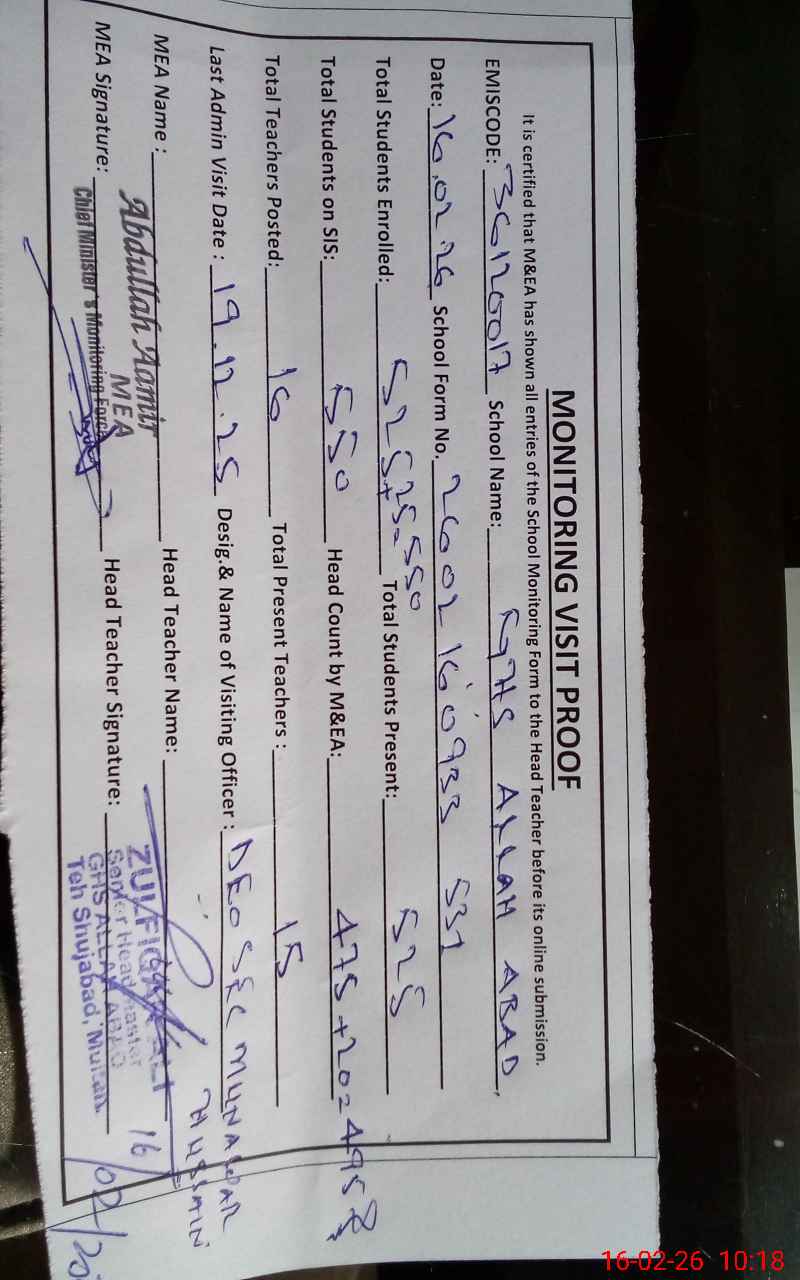 MONITORING VISIT PROOF
It is certified that M&EA has shown all entries of the School Monitoring Form to the Head Teacher before its online submission.
EMISCODE: 36120017 School Name: GHS ALLAH ABAD
Date: 16.02.26 School Form No. 2602160933 531
Total Students Enrolled: 525+25=550 Total Students Present: 525
Total Students on SIS: 550 Head Count by M&EA: 475+20=495
Total Teachers Posted: 16 Total Present Teachers : 15
Last Admin Visit Date : 19.12.25 Desig.& Name of Visiting Officer : DEO SEC
HUSSAIN
MEA Name : Abdullah Aamir Head Teacher Name: ZULFIQAR ALI
MEA Senior Headmaster
MEA Signature: Chief Minister's Monitoring Force Head Teacher Signature: GHS ALLAH ABAD
Teh Shujabad, Multan
16/02/
16-02-26 10:18